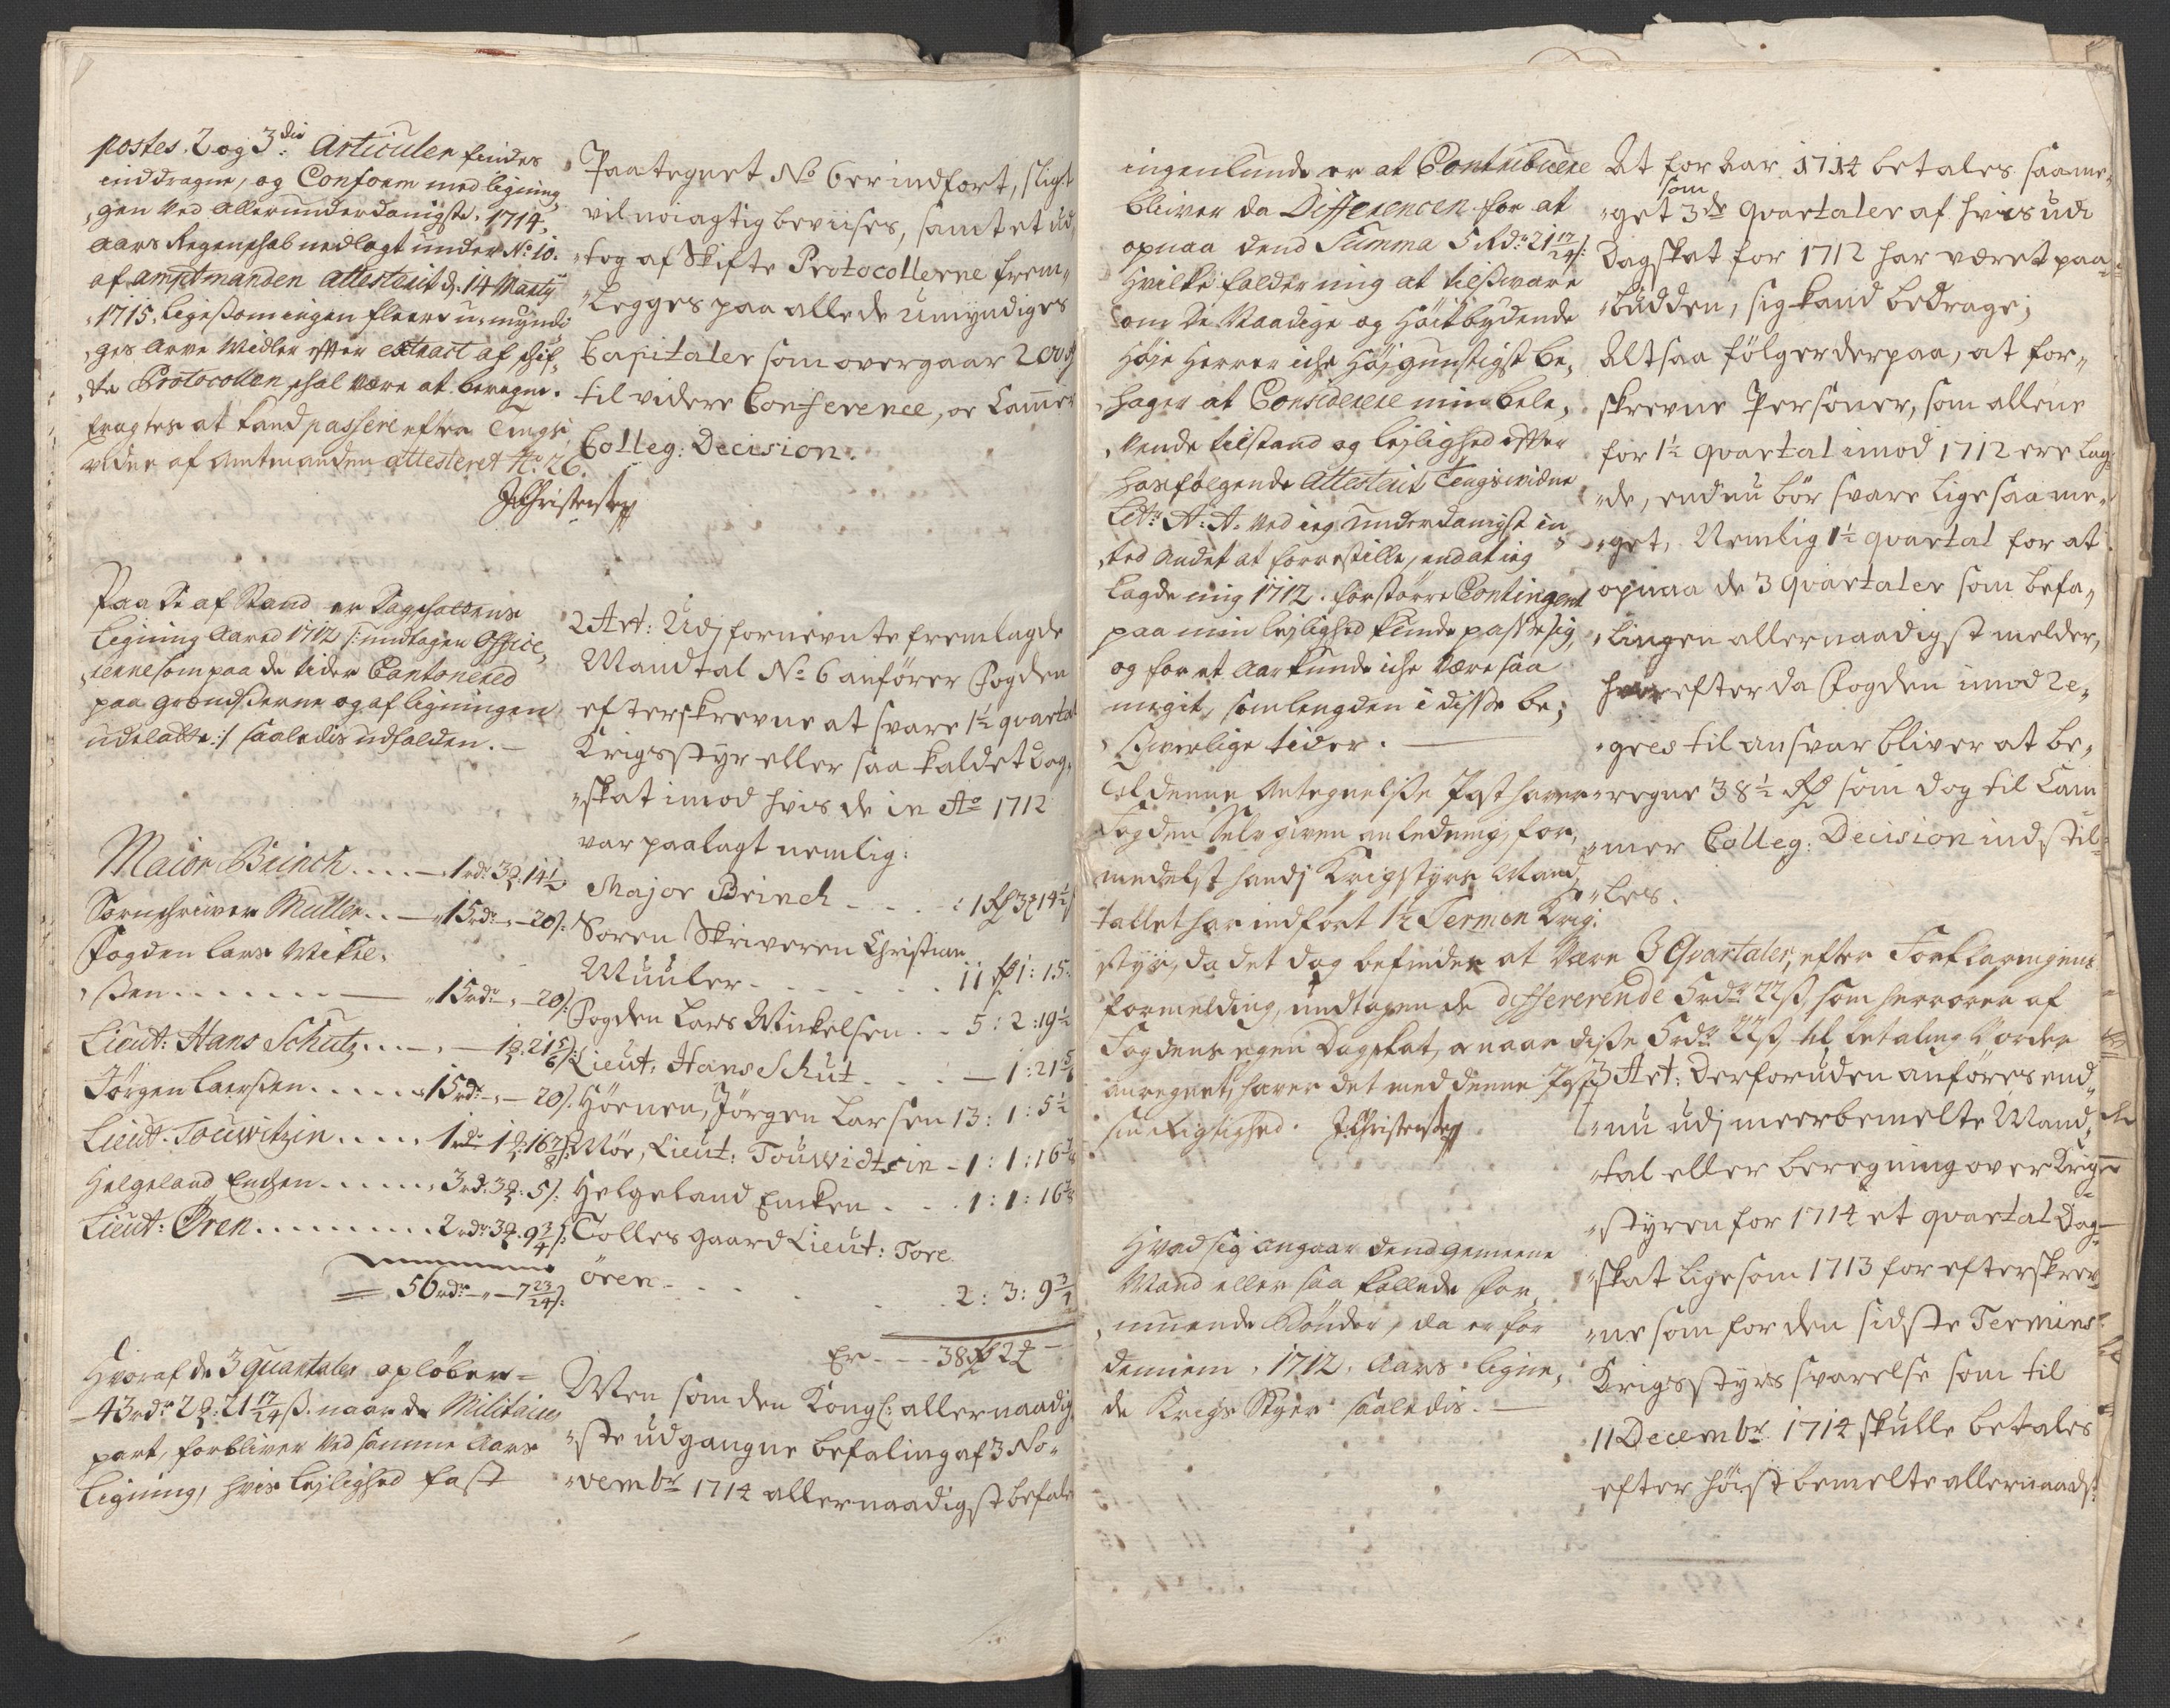 postes. 2 og 3die Articuler findes
inddragne, og Conform med ligning
gen ved allerunderdanigste. 1714,
aars Regenschab nedlagt under No. 10.
af amptmanden attesterit d. 14 Marty
1715. ligesom ingen fleere u-myndi
ges arve Midler efter extract af schif
te Protocollen schal være at beregne.
fragtes at kand passere efter Tings
vidne af Amtmanden attesteret No. 26.
J. Christensen
Paa De af Stand er Dagskattens
Ligning Aared 1712 /: undtagen Office
rerne som paa de tider Cantonered
paa grendserne og af ligningen
udeladte :/ saaledis udfalden. —
Maior Brinch . . . . — 1 rdr 3 ort 14 1/2
Sorenschriver Muller . . — 15 rdr - 20 s:
Fogden Lars Mikel,
sen . . . . . . . — 15 rdr - 20 s:
Lieut: Hans Schutz . . . . — 1 ort 21 5/6 s:
Jörgen Laersen . . . . . 15 rdr - 20 s:
Lieut. Touwitzin . . . . . 1 rdr 1 ort 16 7/8 s:
Helgeland Enchen . . . . . . 3 rdr 3 ort 5 s:
Lieut: Øren . . . . . . . . . 2 rdr 3 ort 9 3/4 s:
= 56 rdr - 7 23/24 s:
Hvoraf de 3 quartaler opløber =
43 rdr 2 ort 21 17/24 s. naar de Militaire
part, forbliver ved samme Aars
Ligning, hvis lejlighed fast
Paategnet No 6 er indfört, sligt
vil nöiagtig beviises, samt et ud,
tog af Skifte Protocollerne frem,
Legges paa alle de umyndiges
Capitaler som overgaar 200 rd
til videre Conference, or Camer
Colleg: Decision.
2 Art: Udj fornevnte fremlagde
Mandtal No 6 anförer Fogden
efterskrevne at svare 1 1/2 quartal
Krigsstyr eller saa kaldet Dag,
skat imod hvis de in Ao 1712
var paalagt nemlig:
Major Brinch - . . . : 1 rd 3 ort 14 1/2
Soren Skriveren Christian
Muuler . . . . . . . 11 rd 1: 15
Fogden Lars Mickelsen . . 5: 2: 19 1/2
Lieut. Hans Schut . . . . — 1: 21 5/6
Hörnen, Jörgen Larsen 13: 1: 5 1/2
Mör, Lieut: Touwidtzin - 1: 1: 16 7/8
Helgeland Encken . . . 1: 1: 16 7/8
Tolles gaard Lieut: Tore
ören - . . . . . . 2: 3: 9 3/4
Er - - - 38 rd 2 ort —
Men som den Kongl: allernaadig,
ste udgangne befaling af 3 No,
vembr 1714 allernaadigst befale
ingenlunde er at Contribuere
bliver da Differencen for at
opnaa dend Summa 5 Rdr: 21 17/24 s:
Hvilke falder mig at tilsvare
om De Naadige og Höitbydende
Höje Herrer iche Höjgunstigst be,
hager at Considerere min bele,
vende tilstand og lejlighed efter
hosfølgende Attesterit Tingsvidne
Litr: A: A. Ved ieg underdanigst in
tet andet at forrestille, end at ieg
lagde mig 1712. för større Contingent
paa min lejlighed kunde passe sig,
og for et aar kunde iche være saa
megit, som lengden i disse be,
sverlige tider. —
Til denne Antegnelse Post haver
Fogden selv given anledning, for,
medelst hands Krigstyrs Mand,
tallet har indfört 1 1/2 Termen Krig:
styr, da det dog befindes at være 3 Qvartaler, efter Forklaringens
formelding, undtagen de differerende 5 rdr 22 s, som herrører af
Fogdens egen Dagskat, og naar disse 5 rdr 22 s til betaling vorder
anregnet, haver det med denne Post
sin Rigtighed. J. Christensen
Hvad sig angaar dend gemeene
Mand eller saa kallede for,
muende Bönder, da er för
dennem. 1712. Aars ligne,
de Krigs Styer saaledis. —
At for Aar 1714 betales saame,
get som 3de quartaler af hvis udi
Dagskat for 1712 har været paa,
budden, sig kand bedrage;
Altsaa fölger derpaa, at for,
skrevne Personer, som allene
for 1 1/2 quartal imod 1712 ere Lag,
de, endnu bör svare lige saa me,
get, Nemlig 1 1/2 quartal for at
opnaa de 3 quartaler som befa,
lingen allernaadigst melder,
hvorefter da Fogden imod Re,
gres til ansvar bliver at be,
regne 38 1/2 rd som dog til Cam
mer Colleg: Decision indstil,
les.
3 Art: Derforuden anföres end,
nu udj meerbemelte Mand,
tal eller beregning over Krig,
styren for 1714 et quartal Dag,
skat ligesom 1713 for efterskrev
ne som for den sidste Termins
Krigsstyrs svarelse som til
11 Decembr. 1714 skulle betales
efter höist bemelte allernaadst: